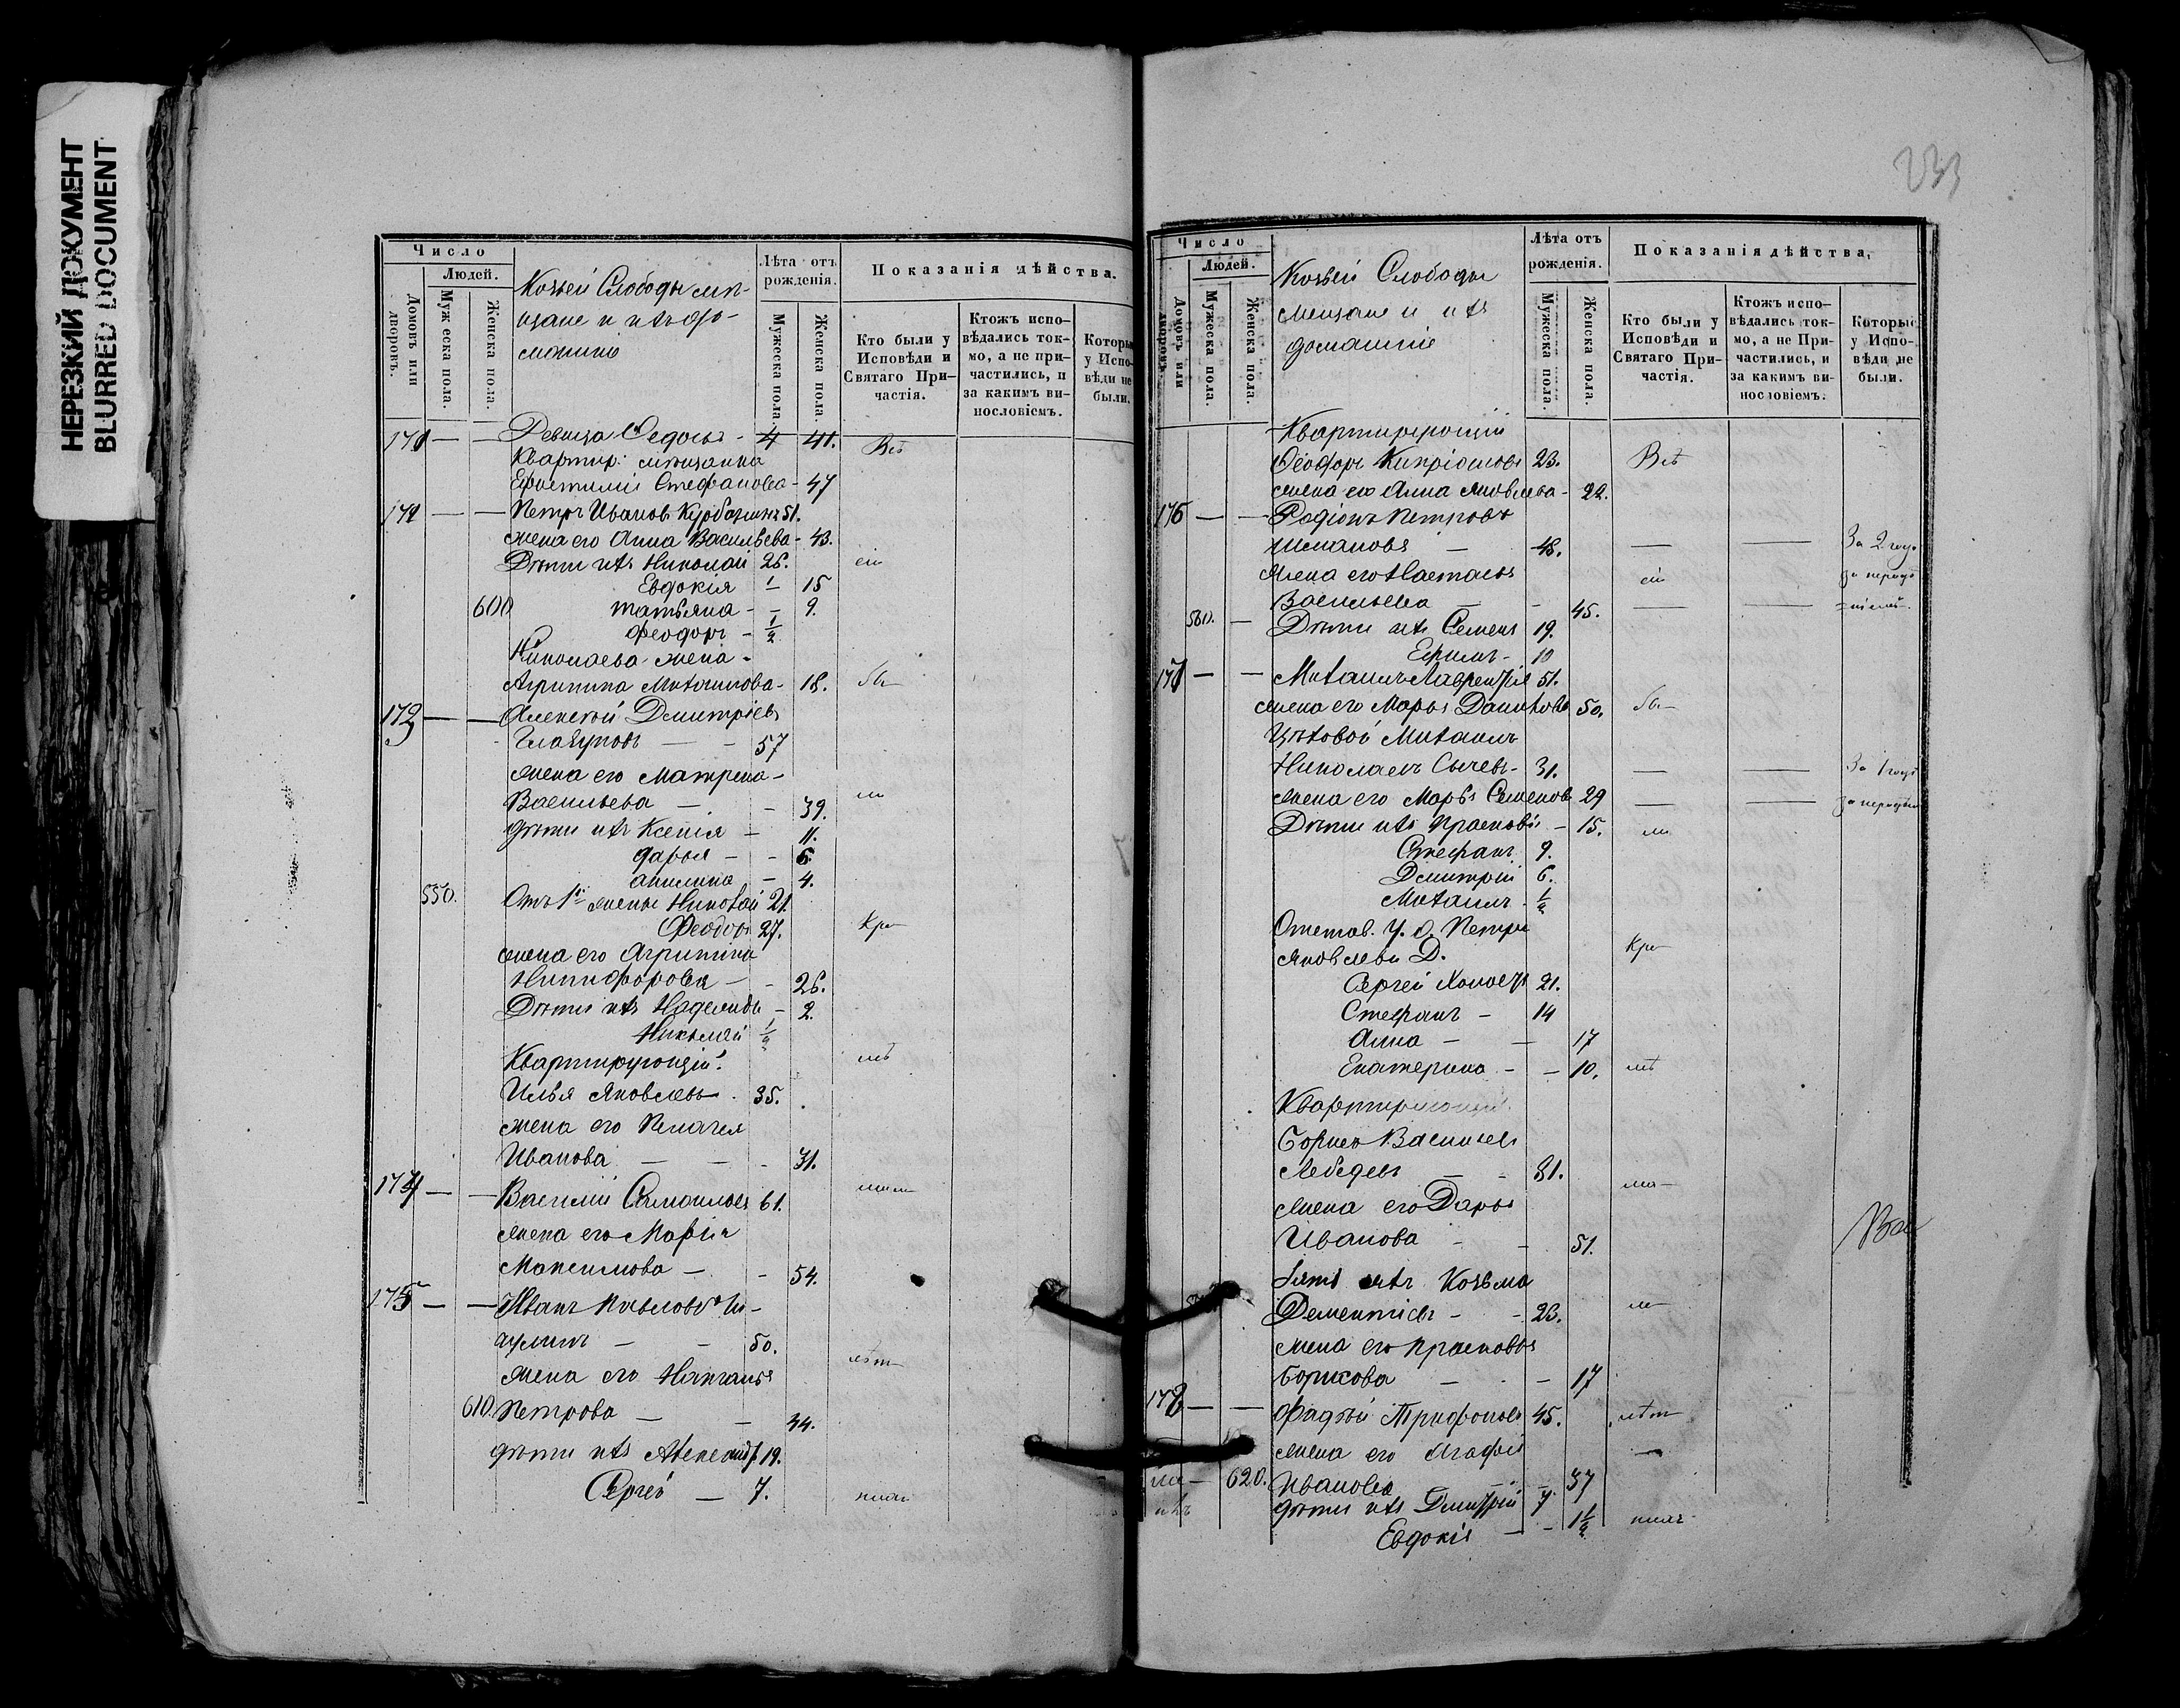 НЕРЕЗКИЙ ДОКУМЕНТ
BLURRED DOCUMENT
Число
Людей.
Домовъ или дворовъ.
Мужеска пола.
Женска пола.
Козьей Слободы мѣ-
щане и ихъ до-
машніе
Лѣта отъ рожденія.
Мужеска пола
Женска пола
Показанія дѣйства.
Кто были у Исповѣди и Святаго При-частія.
Ктожъ испо-вѣдались ток-мо, а не при-частились, и за какимъ ви-нословіемъ.
Которые у Испо-вѣди не были.
Девица Федосья - 41. Всѣ
Квартир: мѣщанка
Стефанова - 47
171 — — Петръ Иванов 51.
жена его Анна Васильева - 43.
Дѣти ихъ Николай 26. сіи
Евдокія - 15
600 Татьяна - - 9.
Феодоръ - 1/2
Николаева жена -
Агрипина - 18. бы-
172 — — Алексѣй Дмитріевъ
Глазуновъ — - 57
жена его Матрена -
Васильева — - 39.
дѣти ихъ Ксенія - 11.
Дарья - - 6.
Акилина - 4.
550. Отъ 1й жены Николай 21.
Феодоръ 27.
жена его Агрипина
Никифорова - - 26.
Дѣти ихъ Надежда - 2.
Николай 1/2
Квартирующій:
Илья Яковлевъ - 35.
жена его Пелагея
Иванова — — - 31.
174 — — Василій Самойловъ 61.
жена его Марія
Максимова — - 54.
175 — — Иванъ Павловъ
— - 50.
жена его Наталья
610. Петрова — — 44.
дѣти ихъ Александръ 19.
Сергѣй — 7.
233
Число
Людей.
Домовъ или дворовъ.
Мужеска пола.
Женска пола.
Козьей Слободы
мещане и ихъ
домашніе
Лѣта отъ рожденія.
Мужеска пола.
Женска пола.
Показанія дѣйства,
Кто были у Исповѣди и Святаго При-частія.
Ктожъ испо-вѣдались ток-мо, а не При-частились, и за какимъ ви-нословіемъ.
Которые у Испо-вѣди не были.
Квартирующій
Феодоръ Кипріановъ 23. Всѣ
жена его Анна Яковлева - 22.
176 — — Родіонъ Петровъ
— 48. — — За 2 года
жена его Настасья сіи за нерадѣ
Васильева — - 45. — — ніемъ.
560. — Дѣти ихъ Семенъ 19.
Ефимъ - 10
— — Михаилъ Лаврентіев 51.
жена его Марья 50. бы-
Цѣховой Михаилъ
Николаевъ Сычевъ - 31. — — За 1 годъ
жена его Марья Семенов 29 — — за нерадѣ
Дѣти ихъ Прасковья - 15. ли
Стефанъ 9.
Дмитрій 6.
Михаилъ 1/2
Отстав. У. О. Петра
Яковлева Д.
Сергей 21.
Стефанъ - 14
Анна — — 17
Екатерина - - 10.
Квартирующій
Борисъ Васильевъ
Лебедевъ — - 81.
жена его Дарья
Иванова - - 51.
Зять ихъ Козьма
Дементіевъ - - 23.
жена его Прасковья
Борисова - - - 17
— — Фадѣй Трифоновъ 45.
жена его Агафья
620. Иванова — - 37
дѣти ихъ Дмитрій 7
Евдокія — - 1 1/2